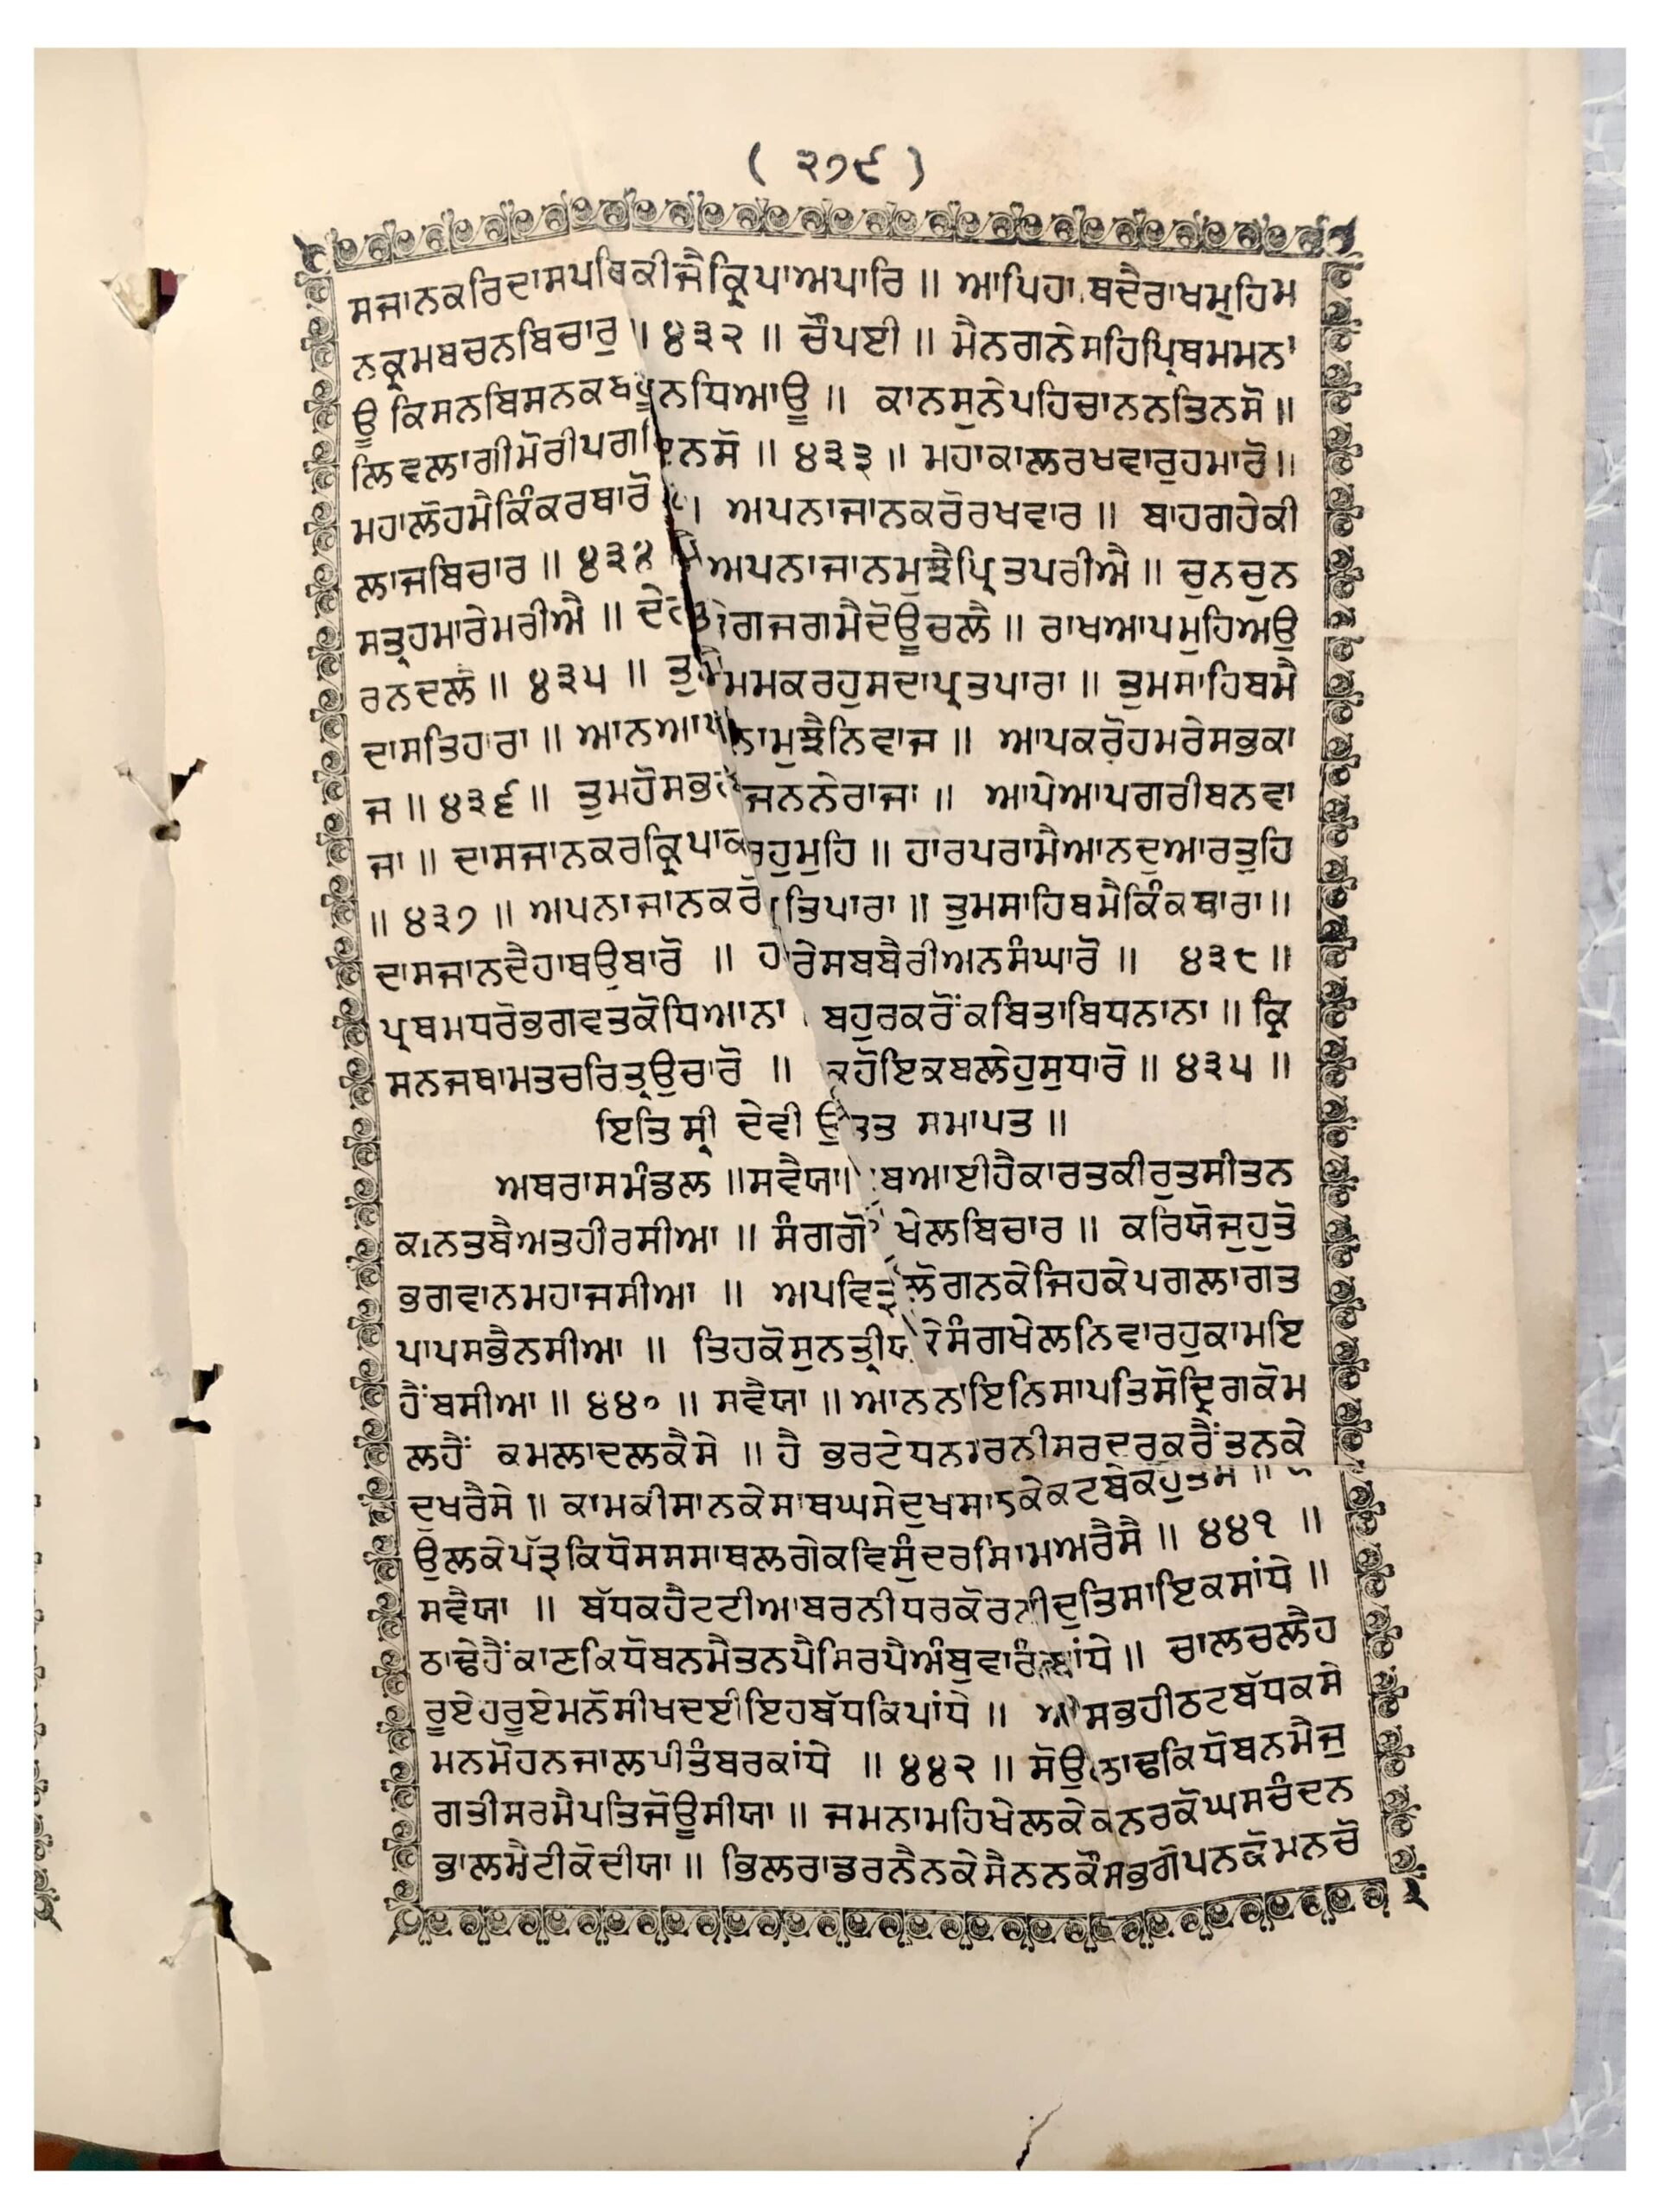 ( ੨੭੯ )
ਸਜਾਨਕਰਿਦਾਸਪਰਿਕੀਜੈਕ੍ਰਿਪਾਅਪਾਰਿ ॥ ਆਪਿਹਾਥਦੈਰਾਖਮੁਹਿਮ
ਨਕ੍ਰਮਬਚਨਬਿਚਾਰੁ ॥ ੪੩੨ ॥ ਚੌਪਈ ॥ ਮੈਨਗਨੇਸਹਿਪ੍ਰਿਥਮਮਨਾ
ਊ ਕਿਸਨਬਿਸਨਕਬਹੂਨਧਿਆਊ ॥ ਕਾਨਸੁਨੇਪਹਿਚਾਨਨਤਿਨਸੋ ॥
ਲਿਵਲਾਗੀਮੋਰੀਪਗਇਨਸੋ ॥ ੪੩੩ ॥ ਮਹਾਕਾਲਰਖਵਾਰੁਹਮਾਰੋ ॥
ਮਹਾਲੋਹਮੈਕਿੰਕਰਥਾਰੋ ॥ ਅਪਨਾਜਾਨਕਰੋਰਖਵਾਰ ॥ ਬਾਹਗਹੇਕੀ
ਲਾਜਬਿਚਾਰ ॥ ੪੩੪ ॥ ਅਪਨਾਜਾਨਮੁਝੈਪ੍ਰਿਤਪਰੀਐ ॥ ਚੁਨਚੁਨ
ਸਤ੍ਰਹਮਾਰੇਮਰੀਐ ॥ ਦੇਗਤੇਗਜਗਮੈਦੋਊਚਲੈ ॥ ਰਾਖਆਪਮੁਹਿਅਉ
ਰਨਦਲੈ ॥ ੪੩੫ ॥ ਤੁਮਮਮਕਰਹੁਸਦਾਪ੍ਰਤਪਾਰਾ ॥ ਤੁਮਸਾਹਿਬਮੈ
ਦਾਸਤਿਹਾਰਾ ॥ ਆਨਆਪਨਾਮੁਝੈਨਿਵਾਜ ॥ ਆਪਕਰੋਹਮਰੇਸਭਕਾ
ਜ ॥ ੪੩੬ ॥ ਤੁਮਹੋਸਭਰਾਜਨਨੇਰਾਜਾ ॥ ਆਪੇਆਪਗਰੀਬਨਵਾ
ਜਾ ॥ ਦਾਸਜਾਨਕਰਕ੍ਰਿਪਾਕਰਹੁਮੁਹਿ ॥ ਹਾਰਪਰਾਮੈਆਨਦੁਆਰਤੁਹਿ
॥ ੪੩੭ ॥ ਅਪਨਾਜਾਨਕਰੋ ਤਿਪਾਰਾ ॥ ਤੁਮਸਾਹਿਬਮੈਕਿੰਕਥਾਰਾ ॥
ਦਾਸਜਾਨਦੈਹਾਥਉਬਾਰੋ ॥ ਹਰੇਸਬਬੈਰੀਅਨਸੰਘਾਰੋ ॥ ੪੩੮ ॥
ਪ੍ਰਥਮਧਰੋਭਗਵਤਕੋਧਿਆਨਾ । ਬਹੁਰਕਰੋਂਕਬਿਤਾਬਿਧਨਾਨਾ ॥ ਕ੍ਰਿ
ਸਨਜਥਾਮਤਚਰਿਤ੍ਰਉਚਾਰੋ ॥ ਕਹੋਇਕਬਲੇਹੁਸੁਧਾਰੋ ॥ ੪੩੫ ॥
ਇਤਿ ਸ੍ਰੀ ਦੇਵੀ ਉਸਤਤ ਸਮਾਪਤ ॥
ਅਥਰਾਸਮੰਡਲ ॥ਸਵੈਯਾ॥ ਬਆਈਹੈਕਾਰਤਕੀਰੁਤਸੀਤਨ
ਕਾਨਤਬੈਅਤਹੀਰਸੀਆ ॥ ਸੰਗਗੋ ਖੇਲਬਿਚਾਰ ॥ ਕਰਿਯੋਜੁਹੁਤੋ
ਭਗਵਾਨਮਹਾਜਸੀਆ ॥ ਅਪਵਿਤ੍ਰਲੋਗਨਕੇਜਿਹਕੇਪਗਲਾਗਤ
ਪਾਪਸਭੈਨਸੀਆ ॥ ਤਿਹਕੋਸੁਨਤ੍ਰੀਯਕੇਸੰਗਖੇਲਨਿਵਾਰਹੁਕਾਮਇ
ਹੈਂਬਸੀਆ ॥ ੪੪੦ ॥ ਸਵੈਯਾ ॥ ਆਨਨਾਇਨਿਸਾਪਤਿਸੋਦ੍ਰਿਗਕੋਮ
ਲਹੈਂ ਕਮਲਾਦਲਕੈਸੇ ॥ ਹੈ ਭਰਟੇਧਨਾਰਨੀਸਰਦਰੁਕਰੈਂਤਨਕੇ
ਦੁਖਰੈਸੇ ॥ ਕਾਮਕੀਸਾਨਕੇਸਾਥਘਸੇਦੁਖਸਾਨਕੇਕਟਬੇਕਹੁਤੈਸੇ ॥
ਉਲਕੇਪੱਤ੍ਰਕਿਧੋਸਸਸਾਥਲਗੇਕਵਿਸੁੰਦਰਸਿਆਮਅਰੈਸੈ ॥ ੪੪੧ ॥
ਸਵੈਯਾ ॥ ਬੱਧਕਹੈਟਟੀਆਬਰਨੀਧਰਕੋਰਨੀਦੁਤਿਸਾਇਕਸਾਂਧੇ ॥
ਠਾਢੇਹੈਂਕਾਣਕਿਧੋਬਨਮੈਤਨਪੈਸਿਰਪੈਅੰਬੁਵਾਰੰਗਬਾਂਧੇ ॥ ਚਾਲਚਲੈਹ
ਰੂਏਹਰੂਏਮਨੋਸੀਖਦਈਇਹਬੱਧਕਿਪਾਂਧੇ ॥ ਅੌਸਭਹੀਠਟਬੱਧਕਸੇ
ਮਨਮੋਹਨਜਾਲਪੀਤੰਬਰਕਾਂਧੇ ॥ ੪੪੨ ॥ ਸੋਉਠਾਢਕਿਧੋਬਨਮੈਜੁ
ਗਤੀਸਰਮੈਪਤਿਜੋਊਸੀਯਾ ॥ ਜਮਨਾਮਹਿਖੇਲਕੇਕਨਰਕੋਘਸਚੰਦਨ
ਭਾਲਮੈਟੀਕੋਦੀਯਾ ॥ ਭਿਲਰਾਡਰਨੈਨਕੇਸੈਨਨਕੌਸਭਗੋਪਨਕੋਮਨਚੋ